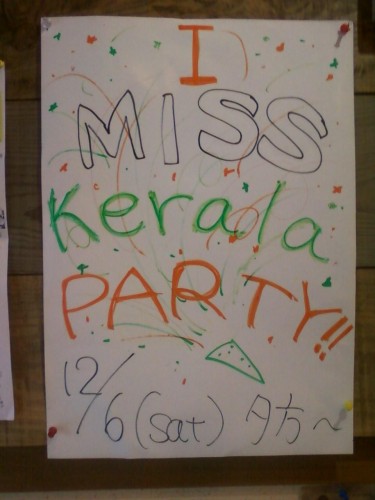 I
MISS
Kerala
PARTY!!
12/6 (sat) 夕方～